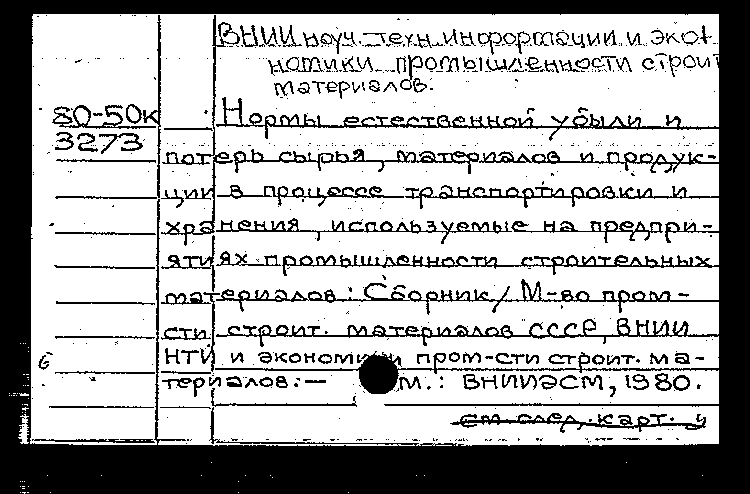 ВНИИ науч.-техн. информации и эко-
номики промышленности строит.
материалов.
80-50к
3273
Нормы естественной убыли и
потерь сырья, материалов и продук-
ции в процессе транспортировки и
хранения, используемые на предпри-
ятиях промышленности строительных
материалов: Сборник/ М-во пром-
сти строит. материалов СССР, ВНИИ
НТИ и экономики пром-сти строит. ма-
териалов.-
М.: ВНИИЭСМ, 1980.
6
см след. карт.